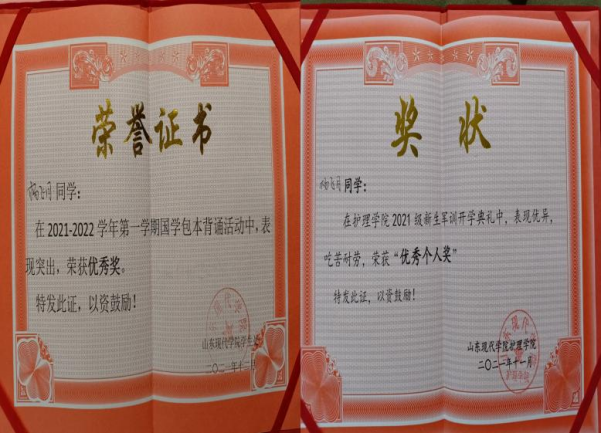 荣誉证书
同学：
在2021-2022学年第一学期国学包本背诵活动中，表
现突出，荣获优秀奖。
特发此证，以资鼓励！
山东现代学院学生处
二〇二一年十
奖状
同学：
在护理学院2021级新生军训开学典礼中，表现优异，
吃苦耐劳，荣获“优秀个人奖”
特发此证，以资鼓励！
山东现代学院护理学院
二〇二一年十一月